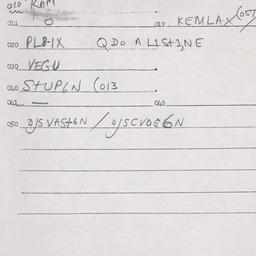 010 RAM
011 0 012. KEMLAX (057
020 PL8-1X QDO A L1St1NE
030 VEGU
040 StUPGN (013
041 — 042
050 0/S VAStGN / 0/SCVOGGN